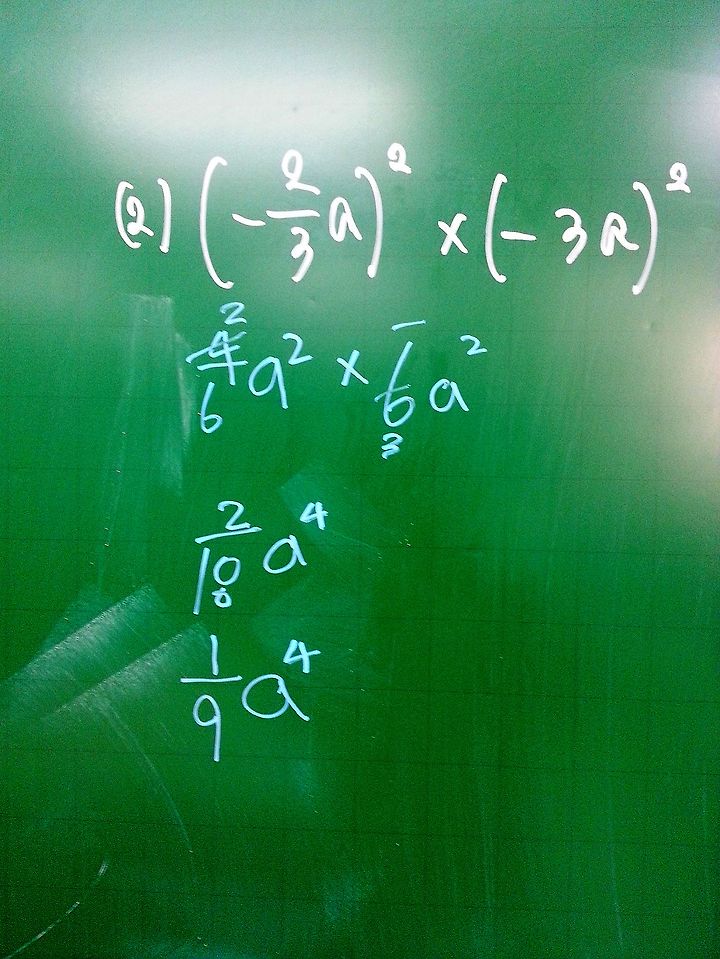 (2) (-2/3 a)² × (-3a)²
4/6 2 a² × 1/6 3 a²
2/18 a⁴
1/9 a⁴